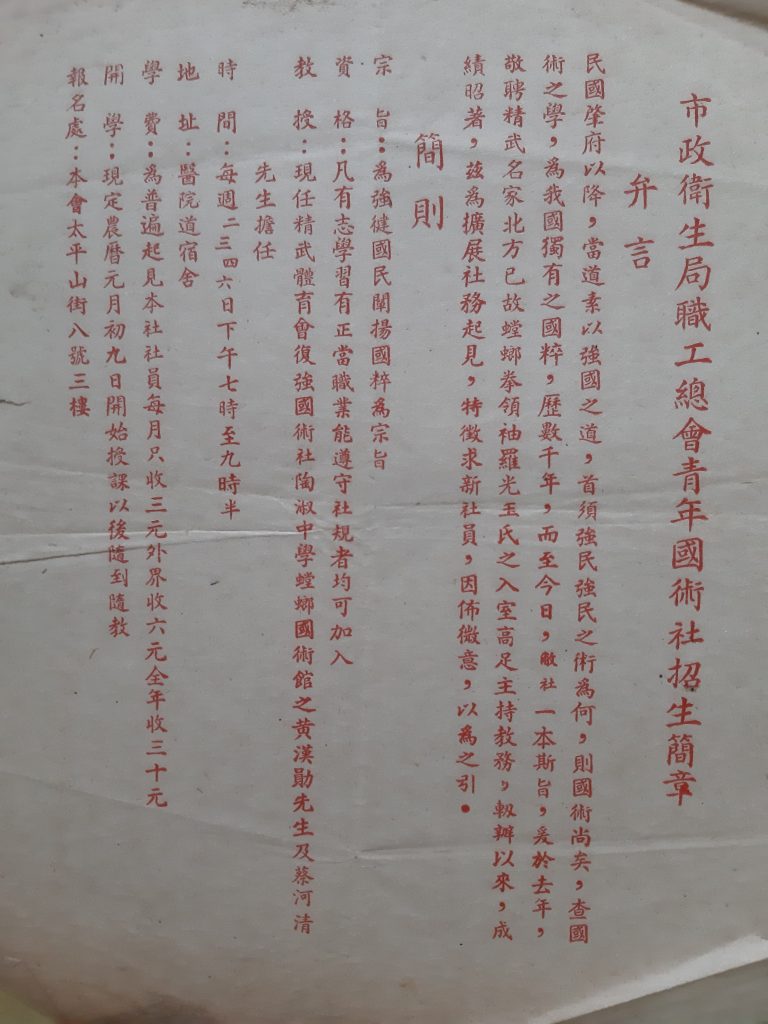 市政衛生局職工總會青年國術社招生簡章
弁言
民國肇府以降，當道素以強國之道，首須強民強民之術為何，則國術尚矣，查國
術之學，為我國獨有之國粹，歷數千年，而至今日，敝社一本斯旨，爰於去年，
敬聘精武名家北方已故螳螂拳領袖羅光玉氏之入室高足主持教務，軔辦以來，成
績昭著，茲為擴展社務起見，特徵求新社員，因佈微意，以為之引。
簡則
宗旨：為強健國民闡揚國粹為宗旨
資格：凡有志學習有正當職業能遵守社規者均可加入
教授：現任精武體育會復強國術社陶淑中學螳螂國術館之黃漢勛先生及蔡河清
先生擔任
時間：每週二三四六日下午七時至九時半
地址：醫院道宿舍
學費：為普遍起見本社社員每月只收三元外界收六元全年收三十元
開學：現定農曆元月初九日開始授課以後隨到隨教
報名處：本會太平山街八號三樓